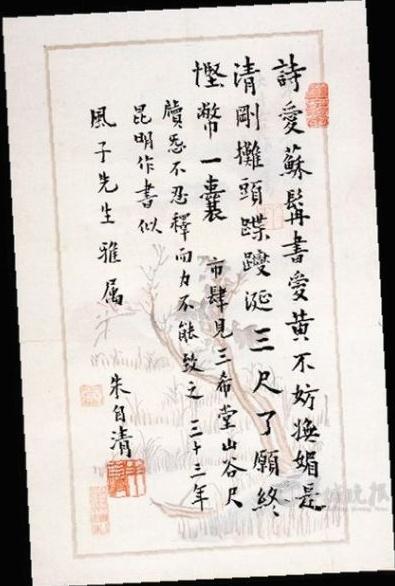 詩愛蘇髯書愛黄不妨嫵媚是
清剛攤頭蹀躞涎三尺了願終
慳幣一囊 市肆見三希堂山谷尺
牘愛不忍釋而力不能致之 三十三年
昆明作書似
風子先生雅属
朱自清